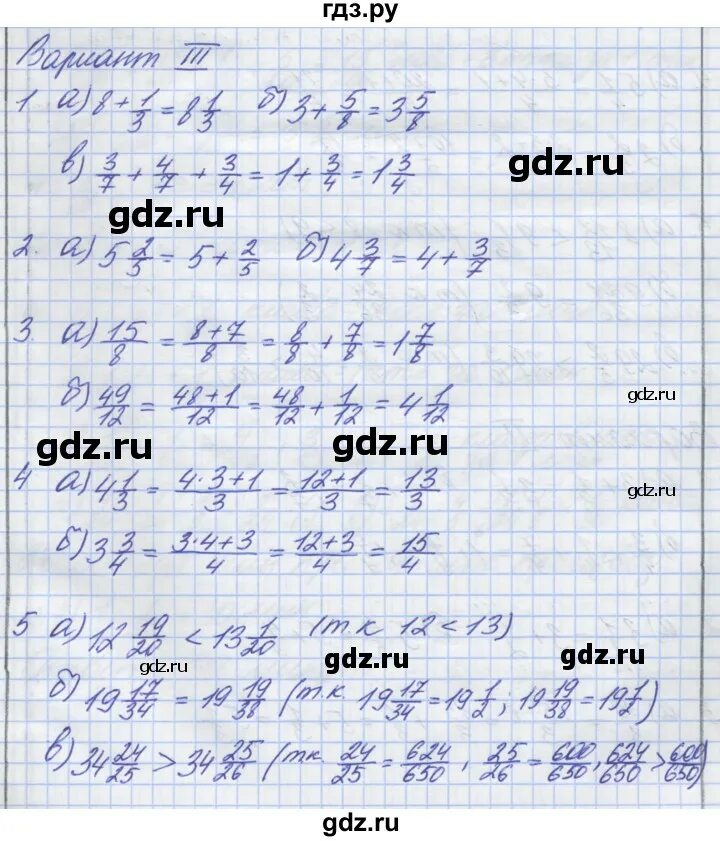 гдз.ру
Вариант III
1 а) 8 + 1/3 = 8 1/3 б) 3 + 5/8 = 3 5/8
gdz.ru
в) 3/7 + 4/7 + 3/4 = 1 + 3/4 = 1 3/4
gdz.ru
2. а) 5 2/5 = 5 + 2/5 б) 4 3/7 = 4 + 3/7
3. а) 15/8 = (8+7)/8 = 8/8 + 7/8 = 1 7/8
б) 49/12 = (48+1)/12 = 48/12 + 1/12 = 4 1/12
gdz.ru
gdz.ru gdz.ru
4 а) 4 1/3 = (4·3+1)/3 = (12+1)/3 = 13/3
gdz.ru
б) 3 3/4 = (3·4+3)/4 = (12+3)/4 = 15/4
5 а) 12 19/20 < 13 1/20 (т.к 12 < 13)
gdz.ru gdz.ru gdz.ru
б) 19 17/34 = 19 19/38 (т.к. 19 17/34 = 19 1/2 ; 19 19/38 = 19 1/2)
в) 34 24/25 > 34 25/26 (тк. 24/25 = 624/650 , 25/26 = 600/650 , 624/650 > 600/650)
gdz.ru